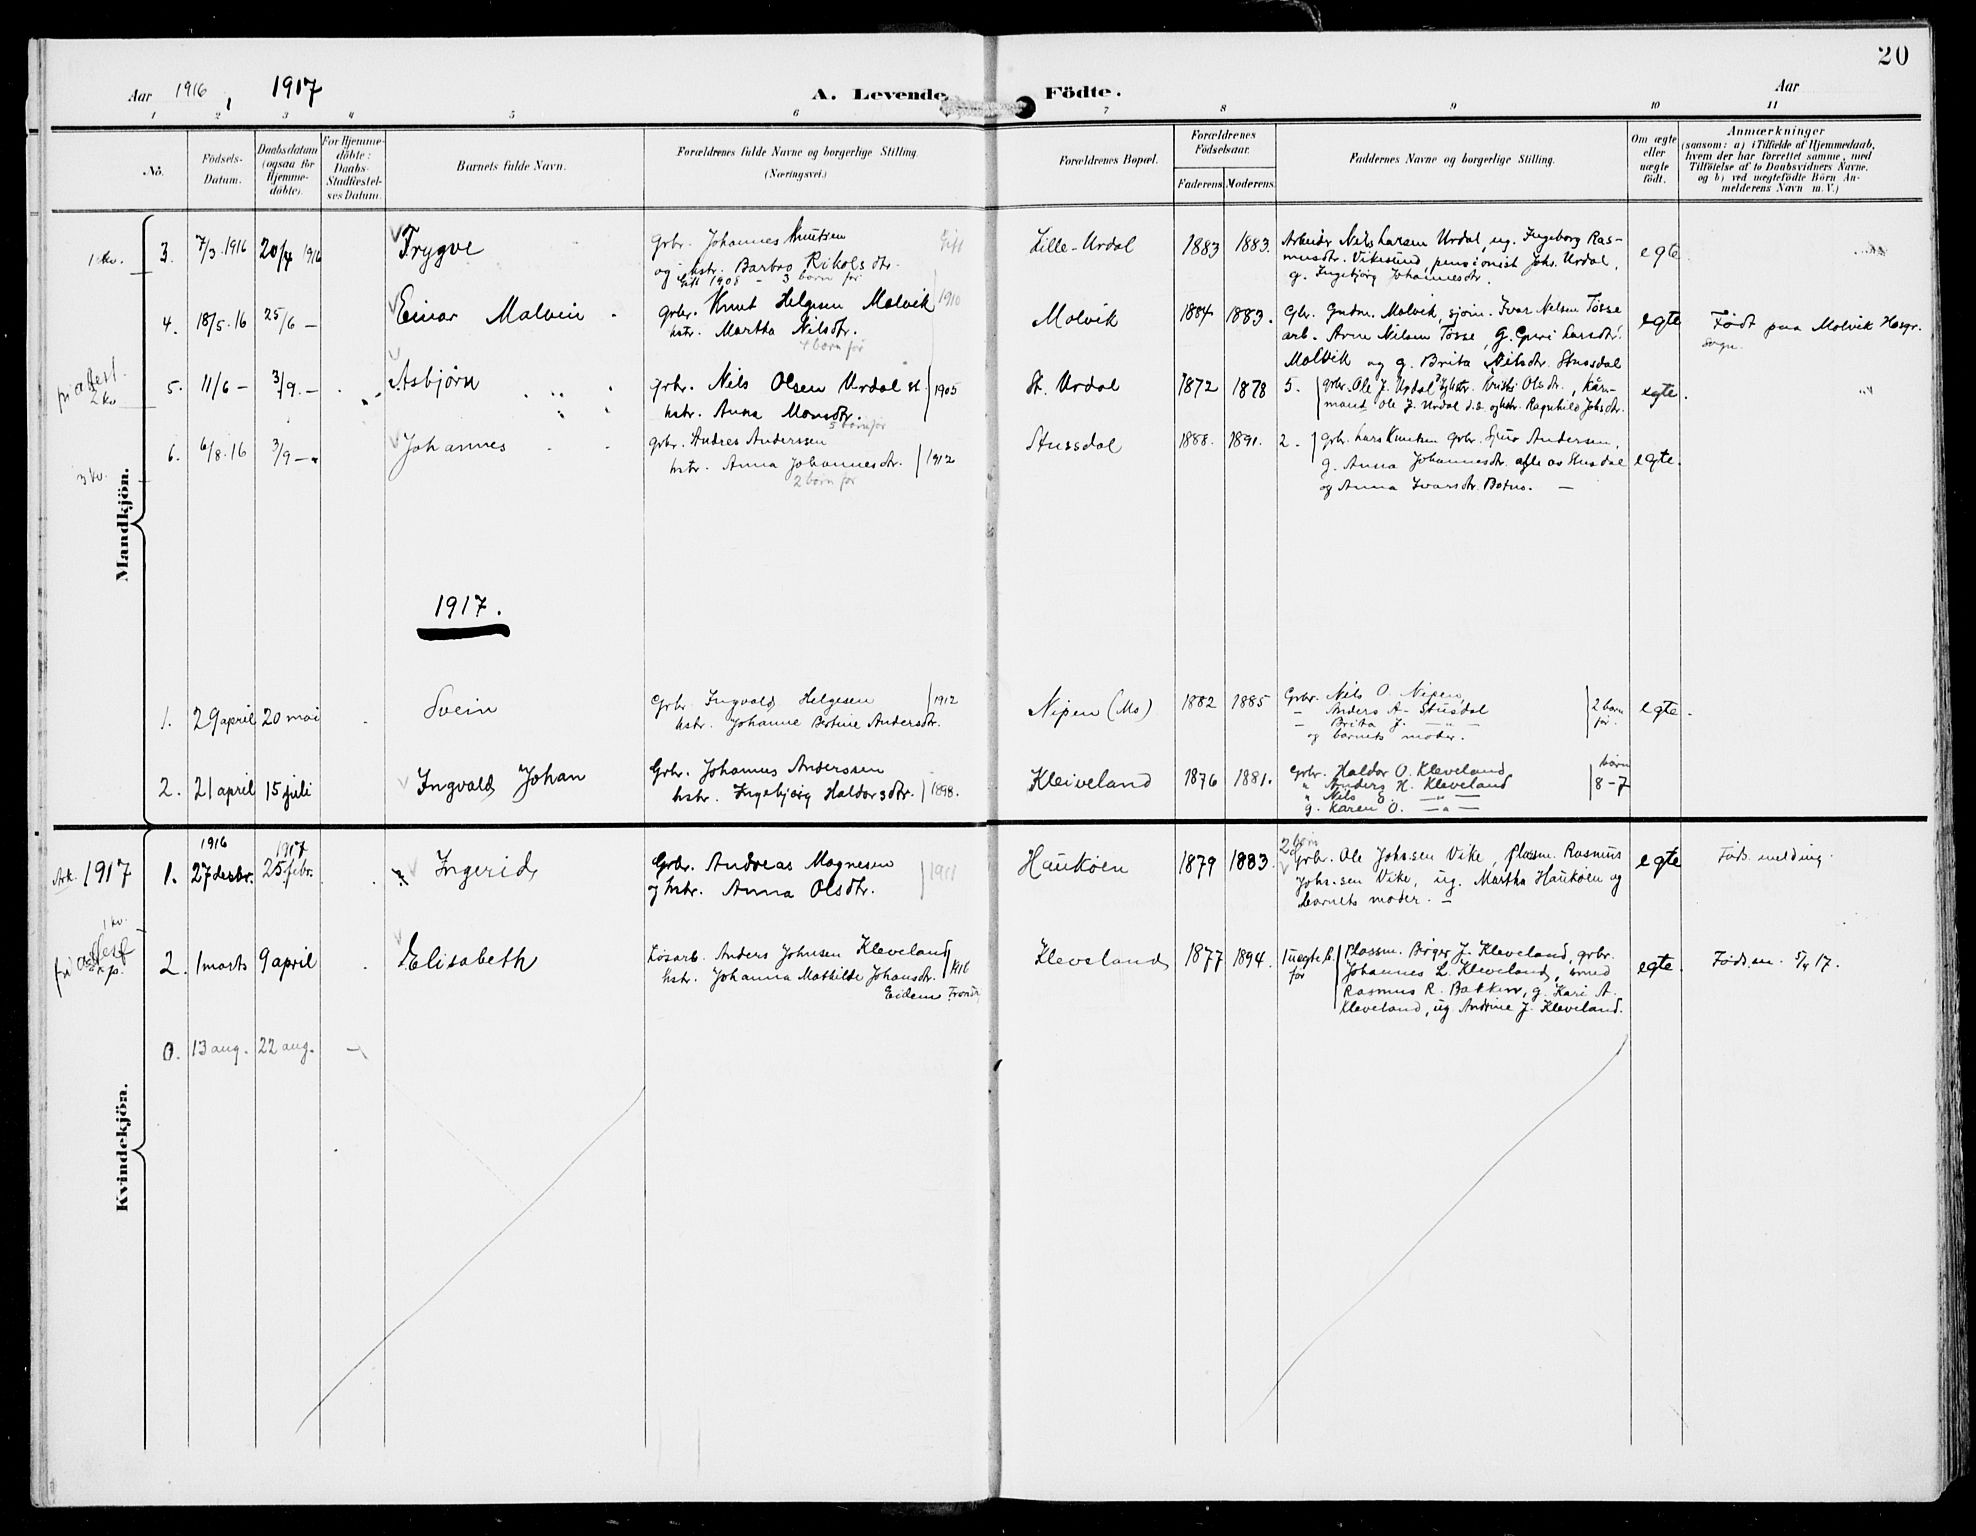 20
Aar 1916, 1917 A. Levende Födte. Aar
1 2 3 4 5 6 7 8 9 10 11
No. Födsels-Datum. Daabsdatum (ogsaa for Hjemme-döbte). For Hjemme-döbte: Daabs-Stadfæstel-ses Datum. Barnets fulde Navn. Forældrenes fulde Navne og borgerlige Stilling. (Næringsvei.) Forældrenes Bopæl. Forældrenes Födselsaar. Faderens. Moderens. Faddernes Navne og borgerlige Stilling. Om ægte eller uægte födt. Anmærkninger
(saasom: a) i Tilfælde af Hjemmedaab,
hvem der har forrettet samme, med
Tilföielse af to Daabsvidners Navne,
og b) ved uægtefödte Börn An-
melderens Navn m. V.)
Mandkjön.
1 kv. 3. 7/3 1916 20/4 1916 Trygve Grbr. Johannes Knutsen Gift
og hstr. Barbro Rikolsdtr.
Gift 1908 - 3 born før
Lille-Urdal 1883 1883. Arbeider Nils Larsen Urdal, ug. Ingeborg Ras-
musdtr. Vikesund, pensionist Johs. Urdal,
g. Ingebjörg Johannesdtr. egte
4. 18/5.16 25/6 — Einar Malvin Grbr. Knut Helgesen Molvik 1910
hstr. Martha Nilsdtr.
4 born før
Molvik 1884 1883. Gbr. Gudm. Molvik, sjöm. Ivar Nelsen Tösse
arb. Arne Nilsen Tösse, g. Guri Larsdtr.
Molvik og g. Brita Nilsdtr. Stussdal egte Födt paa Molvik Hosgr.
Sogn.
2 kv 5. 11/6 — 3/9. — Asbjörn Grbr. Nils Olsen Urdal st. 1905
hstr. Anna Monsdtr.
5 born før
St. Urdal 1872 1878 5. grbr. Ole J. Urdal, hstr. Olsdtr., Kår-
mand Ole J. Urdal d.e. og hstr. Ragnhild Johsdtr. egte.
3 kv. 6. 6/8.16 3/9 — Johannes Grbr. Andres Anderssen
hstr. Anna Johannesdtr. 1912
2 born før
Stussdal 1888. 1891. 2. grbr. Lars Knutsen grbr. Sjur Andersen,
g. Anna Johannesdtr. alle av Stusdal
og Anna Ivarsdtr. Botne. — egte.
1917.
1. 29 april 20 mai Svein Grbr Ingvald Helgesen 1912
hstr. Johanne Botine Andersdtr.
Nipen (Mo) 1882 1885 Grbr. Nils O. Nipen,
— Anders A. Stusdal
— Brita J. — " —
og barnets moder. 2 born før. egte.
2. 21 april 15 juli Ingvald Johan Grbr. Johannes Anderssen
hstr. Ingebjörg Haldorsdtr. 1898.
Kleiveland 1876 1881. Grbr. Haldor O. Kleveland
" Anders H. Kleveland
" Nils E. — " —
g. Karen O. — " — born 8-7
Kvindekjön.
Ark. 1917 1. 1916 27 desbr. 1917 25. febr. Ingerid Grbr. Andreas Magnesen
og hstr. Anna Olsdtr. 1911
Haukøen 1879 1883. 2 born
Grbr. Ole Johs.sen Vike, plassm. Rasmus
Johs.sen Vike, ug. Martha Haukøen og
barnets moder. — egte Föds.melding.
1 kv. 2. 1 marts 9 april Elisabeth Løsarb. Anders Johnsen Kleveland
hstr. Johanna Mathilde Johansdtr.
Eidem
Kleveland 1877 1894. 1 uegte b. før Plassm. Börge J. Kleveland, grbr.
Johannes L. Kleveland, smed
Rasmus R. Bakken, g. Kari A.
Kleveland, ug. Andrine J. Kleveland. egte. Föds.m. 5/4 17.
0. 13 aug. 22 aug. —